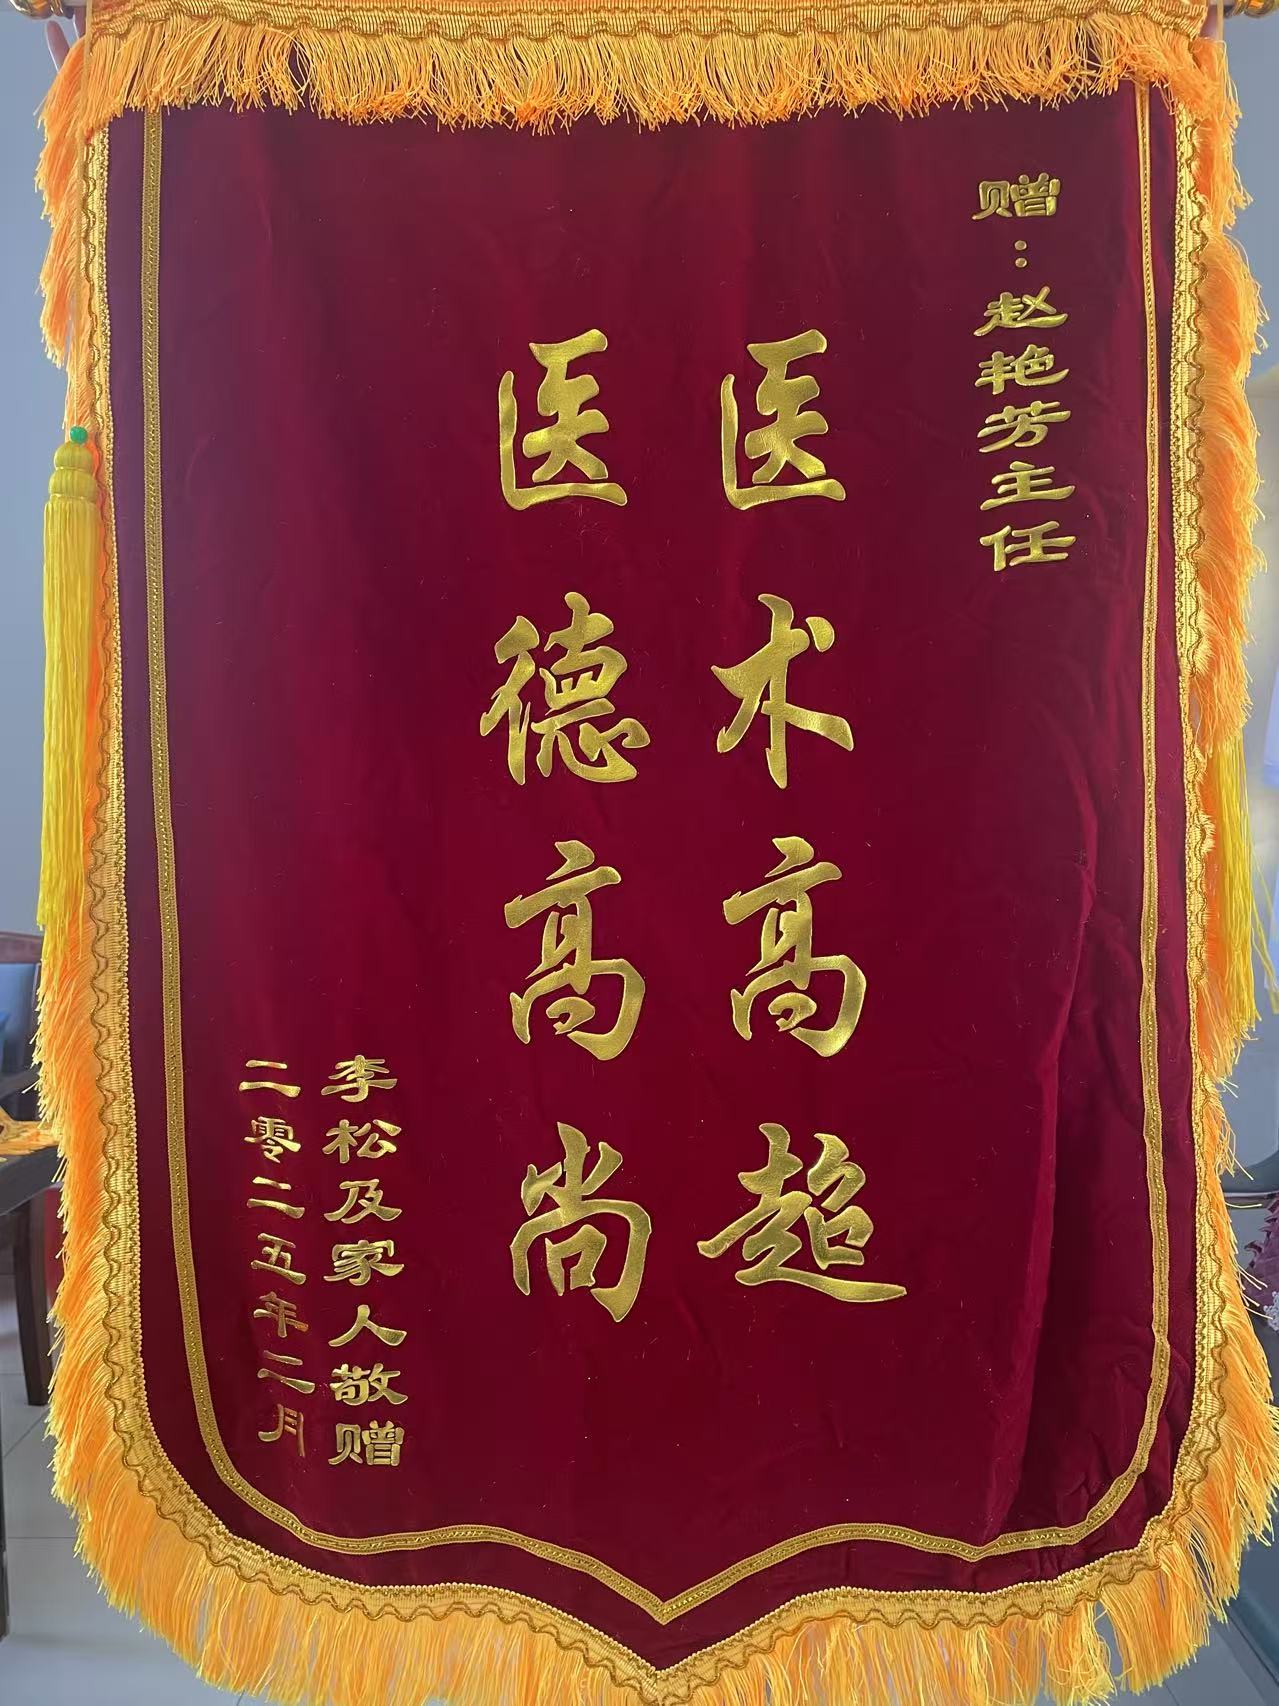 赠：赵艳芳主任
医术高超
医德高尚
李松及家人敬赠
二零二五年二月